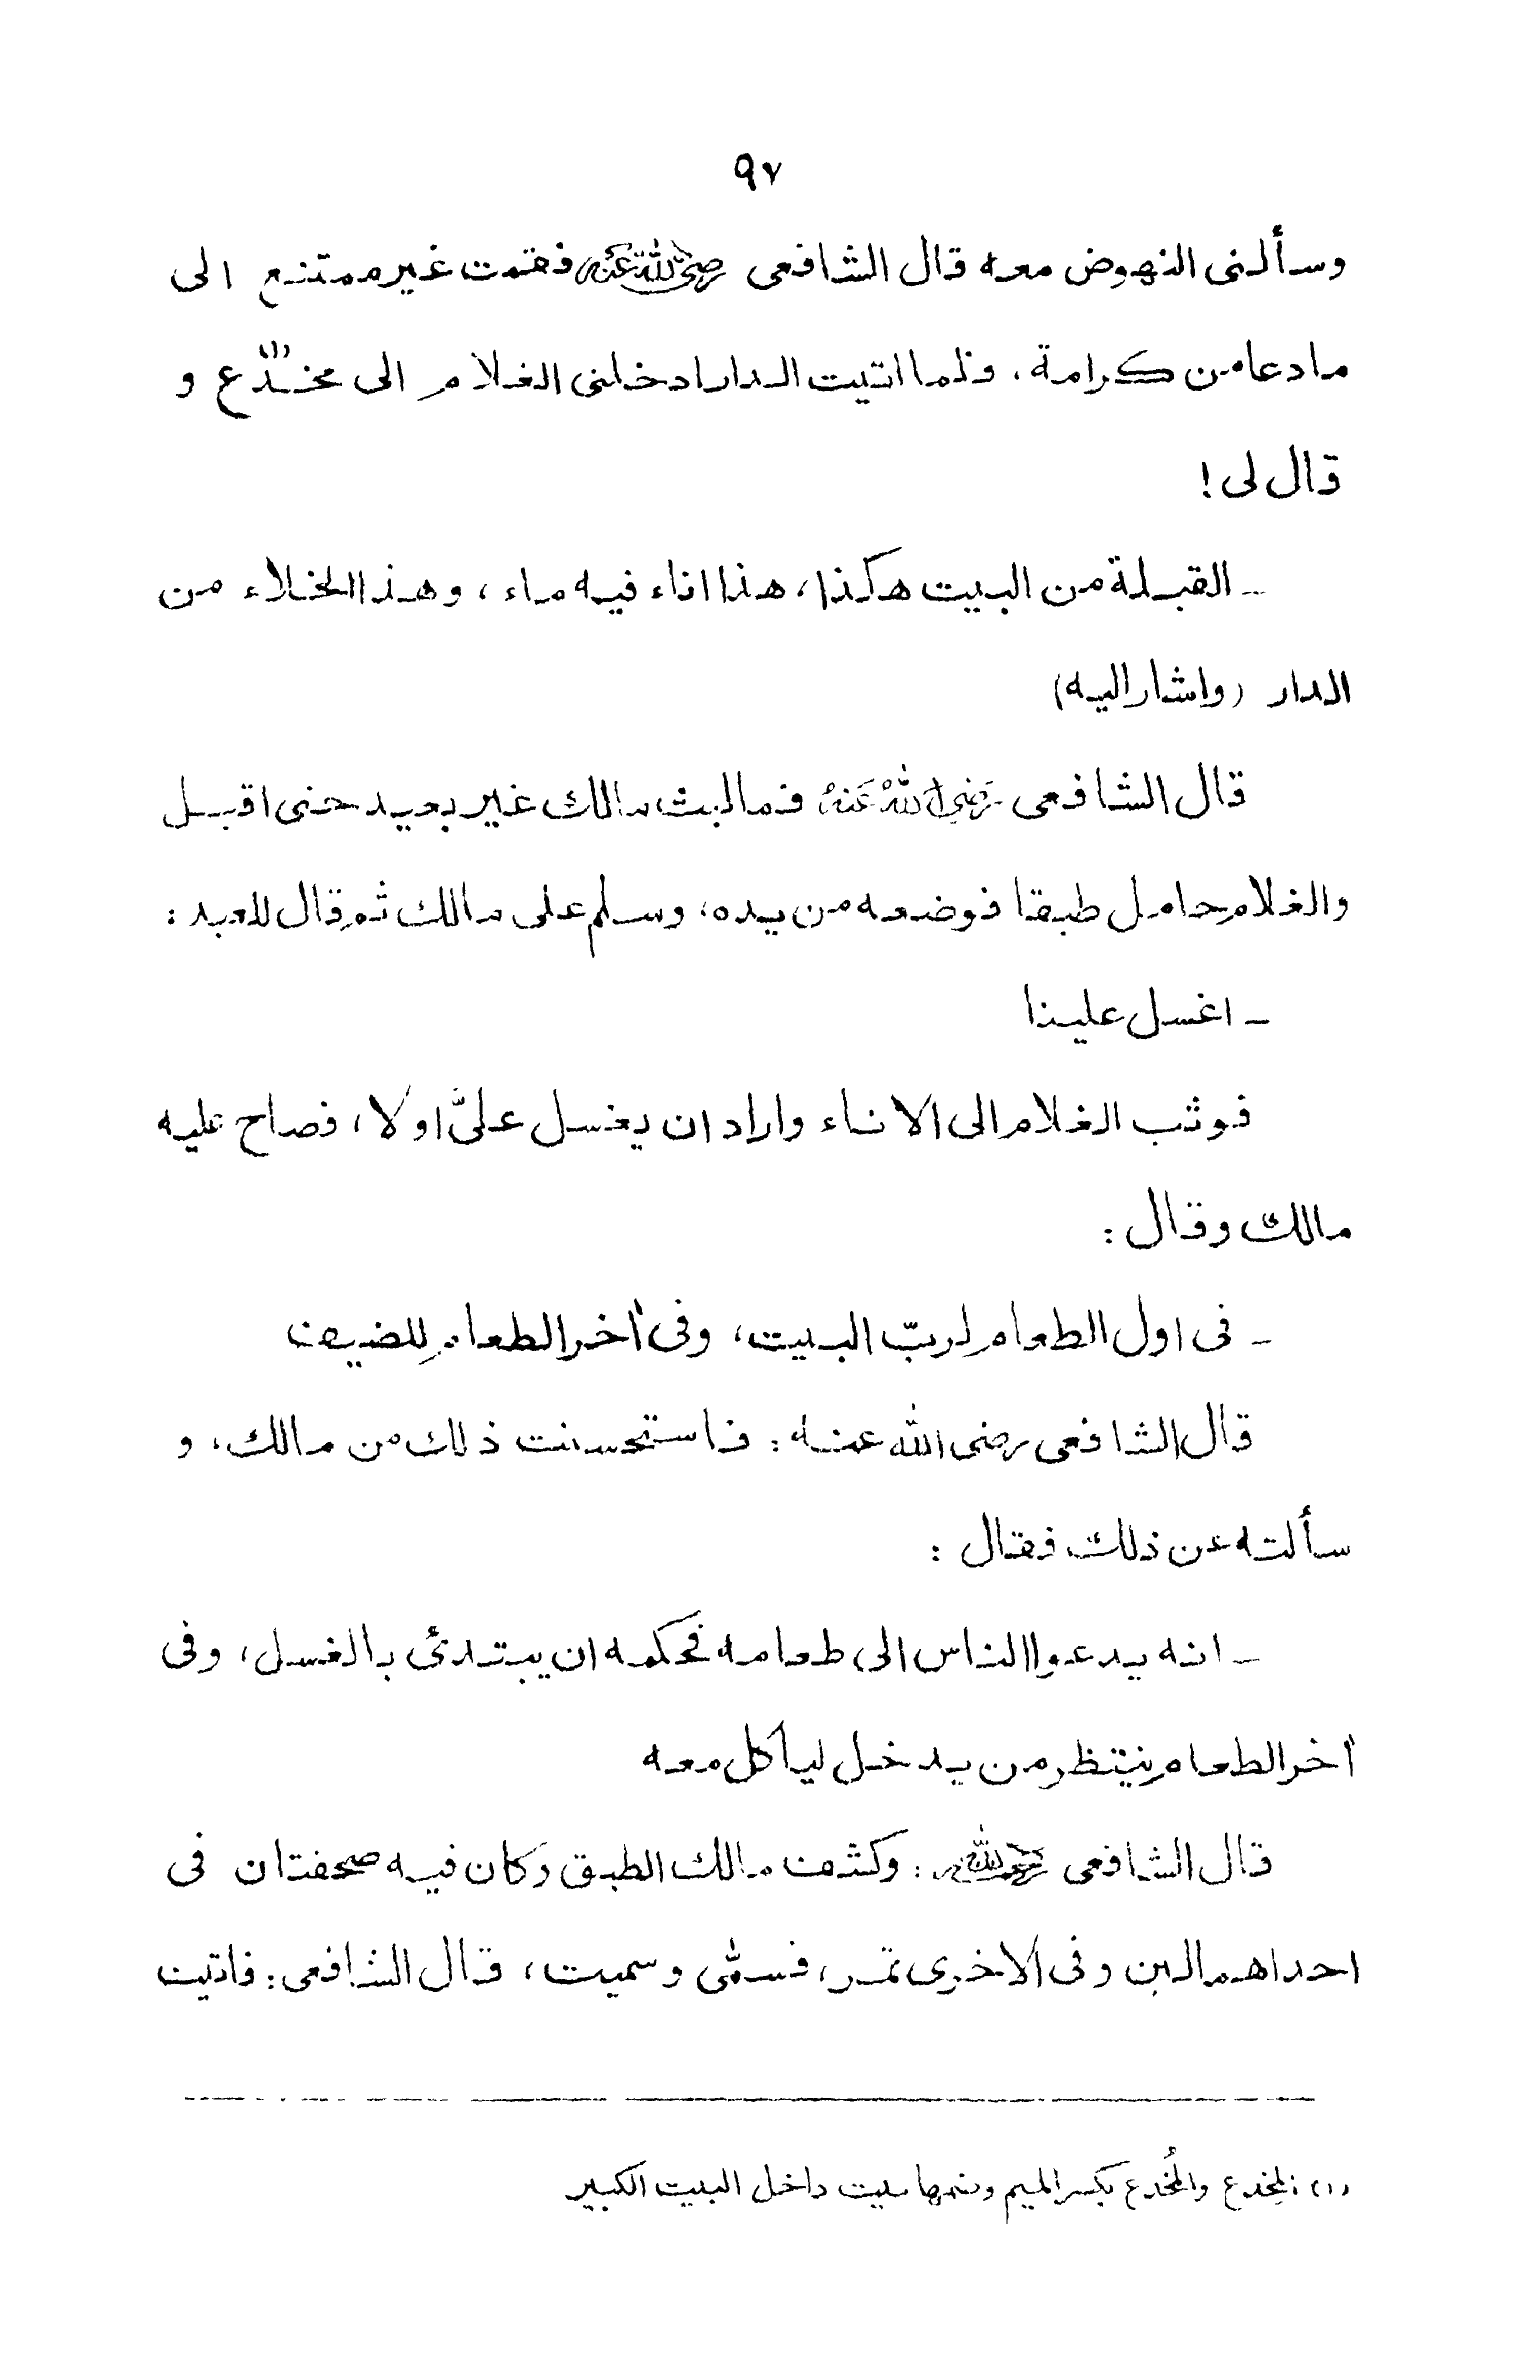 ٩٧
وسألنى النهوض معه قال الشافعى رضى الله عنه فقمت غير ممتنع الى
ما دعا من كرامة. فلما اتيت الدار ادخلنى الغلام الى مخدّع (١) و
قال لى !
ـ القبلة من البيت هكذا، هذا اناء فيه ماء، وهذا الخلاء من
الدار (واشار اليه)
قال الشافعى رَضِىَ اللهُ عَنهُ فما لبث مالك غير بعيد حتى اقبل
والغلام حامل طبقا فوضعه من يده، وسلم على مالك ثم قال للعبد :
ـ اغسل علينا
فوثب الغلام الى الاناء واراد ان يغسل علىَّ اولا، فصاح عليه
مالك وقال :
ـ فى اول الطعام لربّ البيت، وفى أخر الطعام للضيف
قال الشافعى رضى الله عنه : فاستحسنت ذلك من مالك، و
سألته عن ذلك فقال :
ـ انه يدعوا الناس الى طعامه فحكمه ان يبتدئ بالغسل، وفى
أخر الطعام ينتظر من يدخل ليأكل معه
قال الشافعى : وكشف مالك الطبق وكان فيه صحفتان فى
احداهما لبن وفى الاخرى تمر، فسمّى وسميت، قال الشافعى : فاتيت
(١) المِخدع والمُخدع بكسر الميم وضمها بيت داخل البيت الكبير